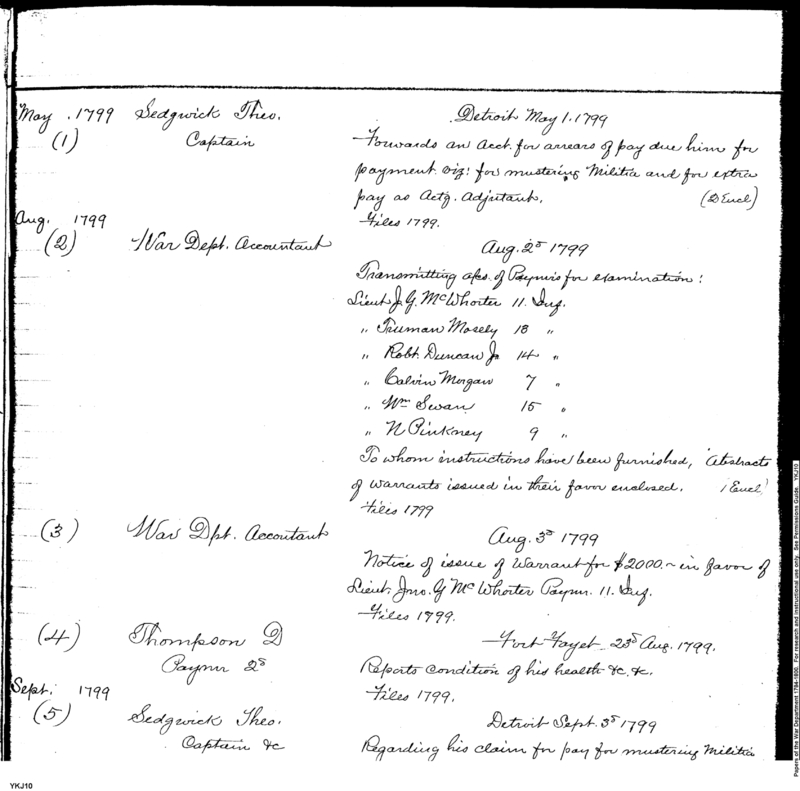 May . 1799 Sedgwick Theo. Detroit May 1. 1799
(1) Captain Forwards an Acct. for arrears of pay due him for
payment viz: for mustering Militia and for extra
pay as Actg. Adjutant. (2 Encl)
Aug. 1799 Files 1799.
(2) War Dept. Accountant Aug. 2d 1799
Transmitting a/cs. of Paymrs for examination:
Lieut J. G. McWhorter 11. Inf.
" Truman Mosely 18 "
" Robt. Duncan Jr 14 "
" Calvin Morgan 7 "
" Wm Swan 15 "
" N Pinkney 9 "
To whom instructions have been furnished, Abstracts
of warrants issued in their favor enclosed. 1 Encl)
Files 1799
(3) War Dpt. Accountant Aug. 3d 1799
Notice of issue of Warrant for $2000.~ in favor of
Lieut. Jno. G McWhorter Paymr. 11. Inf.
Files 1799.
(4) Thompson D Fort Fayet 23d Aug. 1799.
Paymr 2d Reports condition of his health &c. &c.
Sept. 1799 Files 1799.
(5) Sedgwick Theo. Detroit Sept. 3d 1799
Captain &c Regarding his claim for pay for mustering Militia
YKJ10
Papers of the War Department 1784-1800. For research and instructional use only. See Permissions Guide. YKJ10